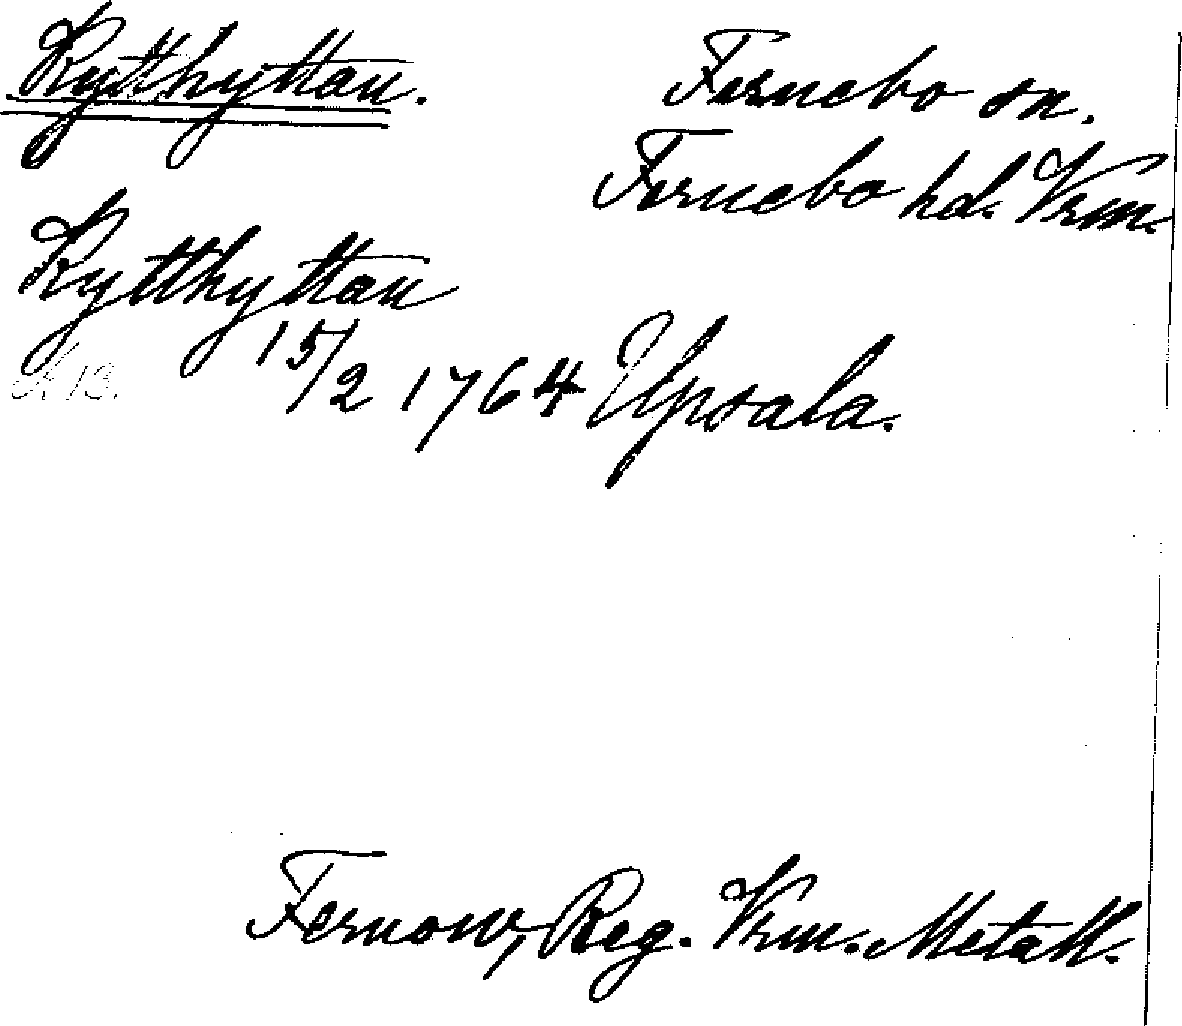 Kytthyttan.
Fernebo sn.
Fernebo hd. Vrm.
Kytthyttan
A 13.
15/2 1764 Upsala.
Fernow, Reg. Vrm. Metall.